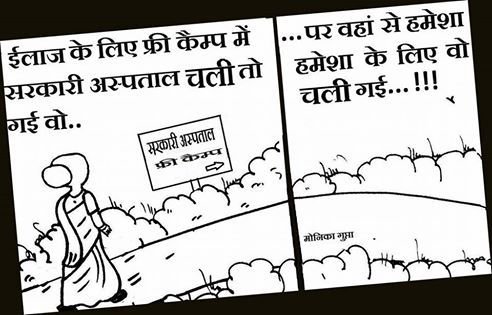 ईलाज के लिए फ्री कैम्प में
सरकारी अस्पताल चली तो
गई वो..
सरकारी अस्पताल
फ्री कैम्प
...पर वहां से हमेशा
हमेशा के लिए वो
चली गई...!!!
मोनिका गुप्ता